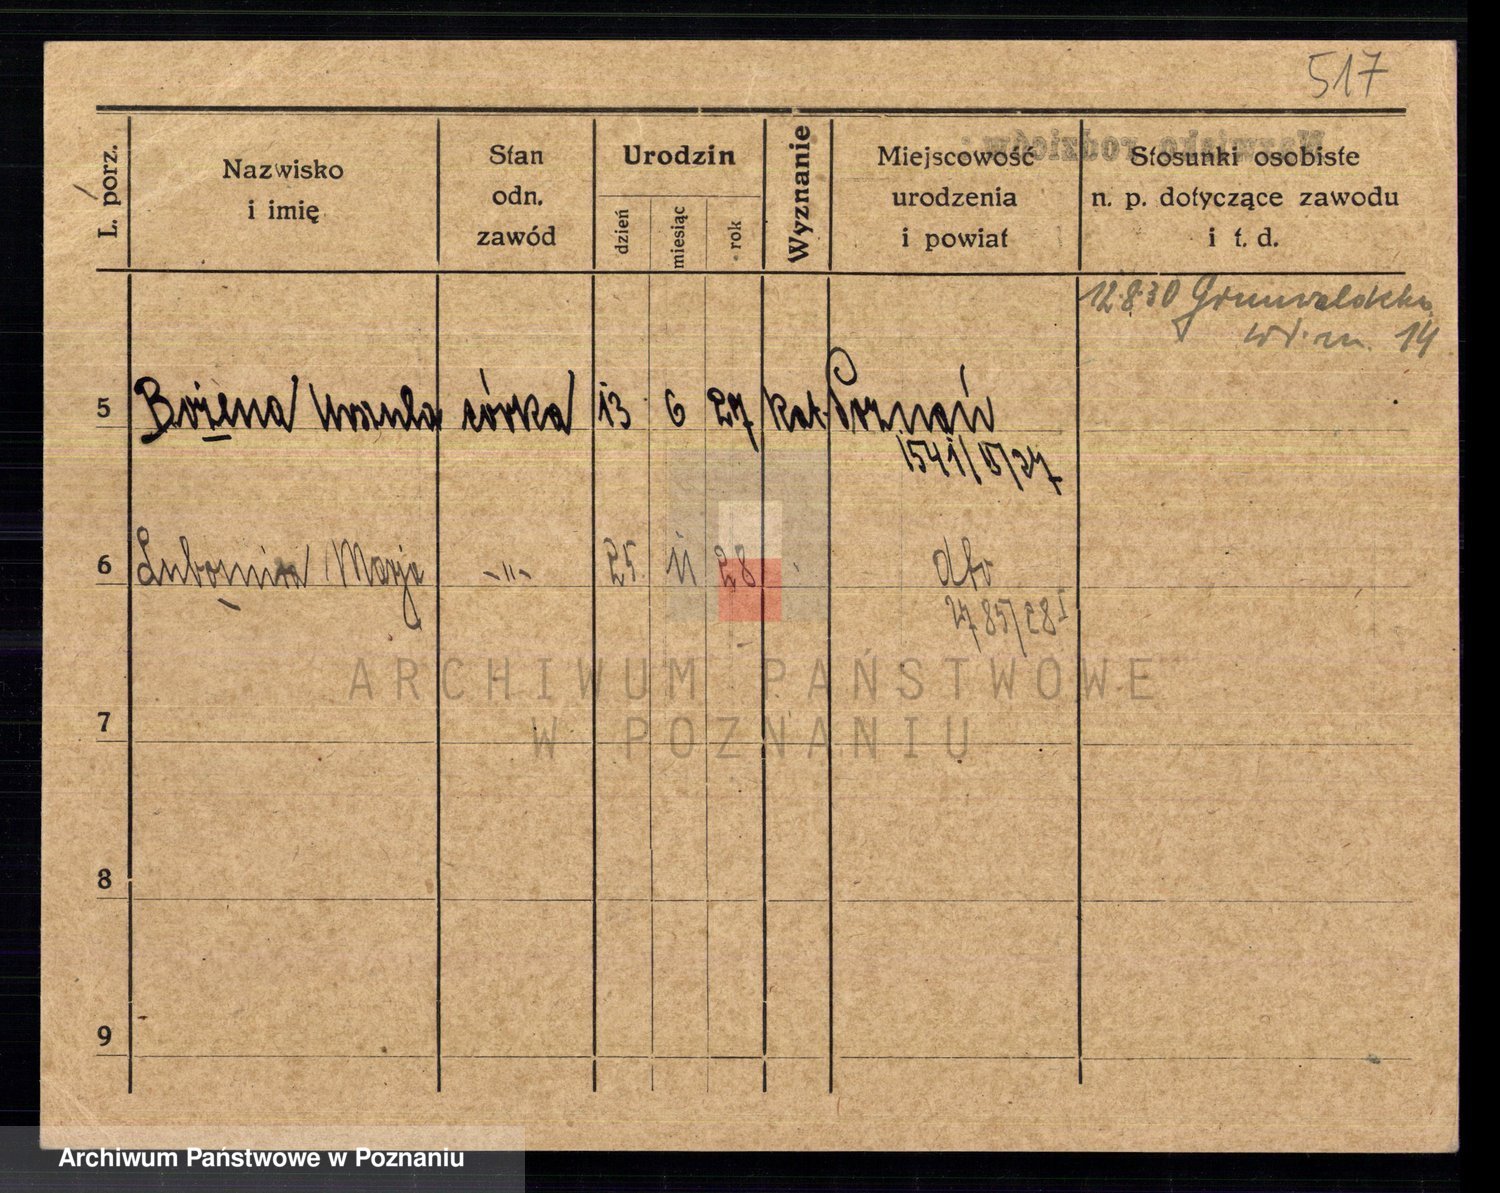 517
L. porz.
Nazwisko
i imię
Stan
odn.
zawód
Urodzin
dzień
miesiąc
rok
Wyznanie
Miejscowość
urodzenia
i powiat
Stosunki osobiste
n. p. dotyczące zawodu
i t. d.
12.8.30 Grunwaldzka
m. 14
5 Bożena Urszula córka 13 6 27 kat. Poznań
1541/V/27
6 Lubomira Marja -"- 25 11 28 dto
2785/28 I
ARCHIWUM PAŃSTWOWE
W POZNANIU
7
8
9
Archiwum Państwowe w Poznaniu